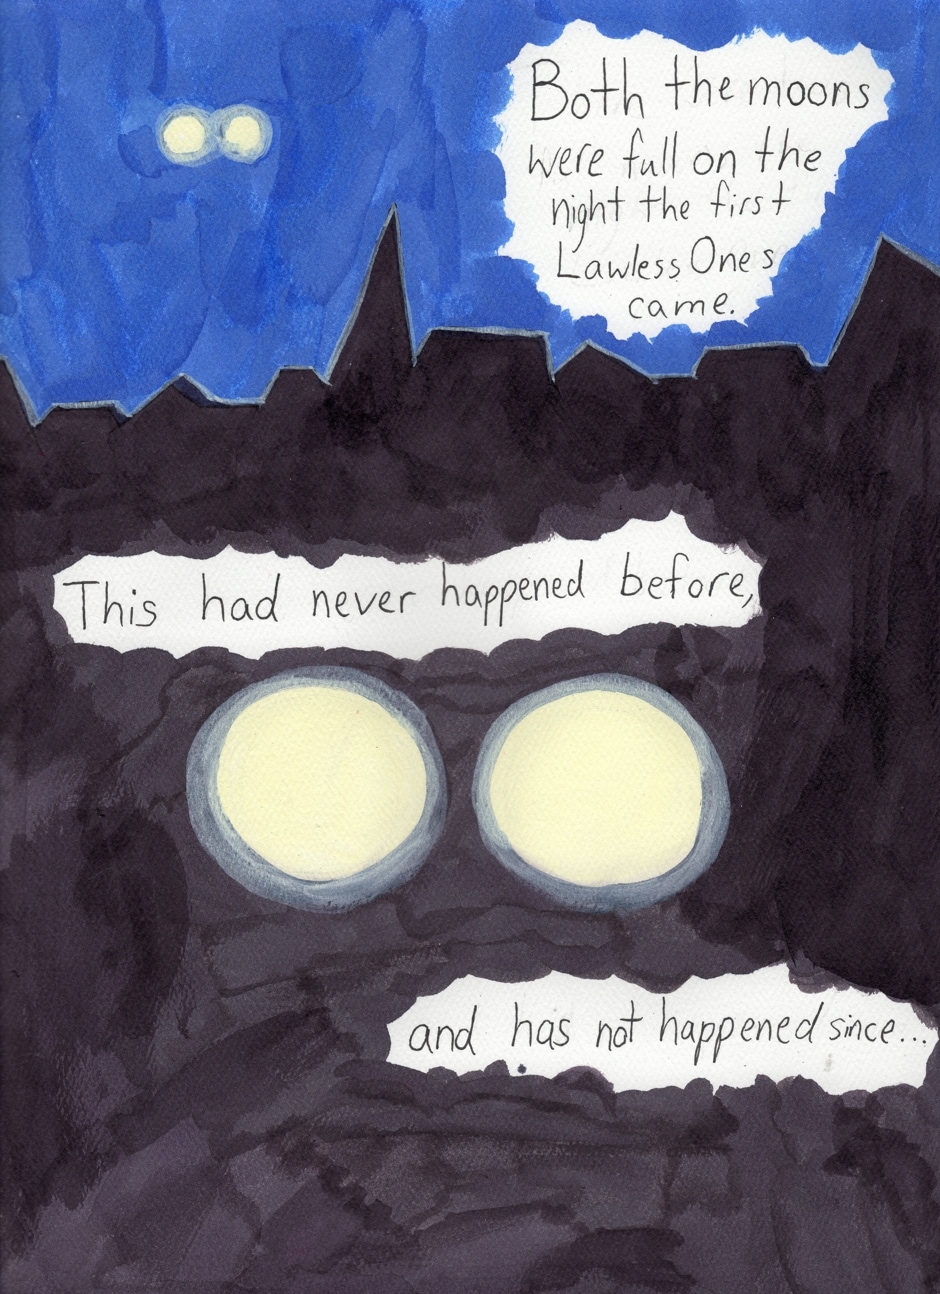 Both the moons
were full on the
night the first
Lawless Ones
came.
This had never happened before,
and has not happened since...